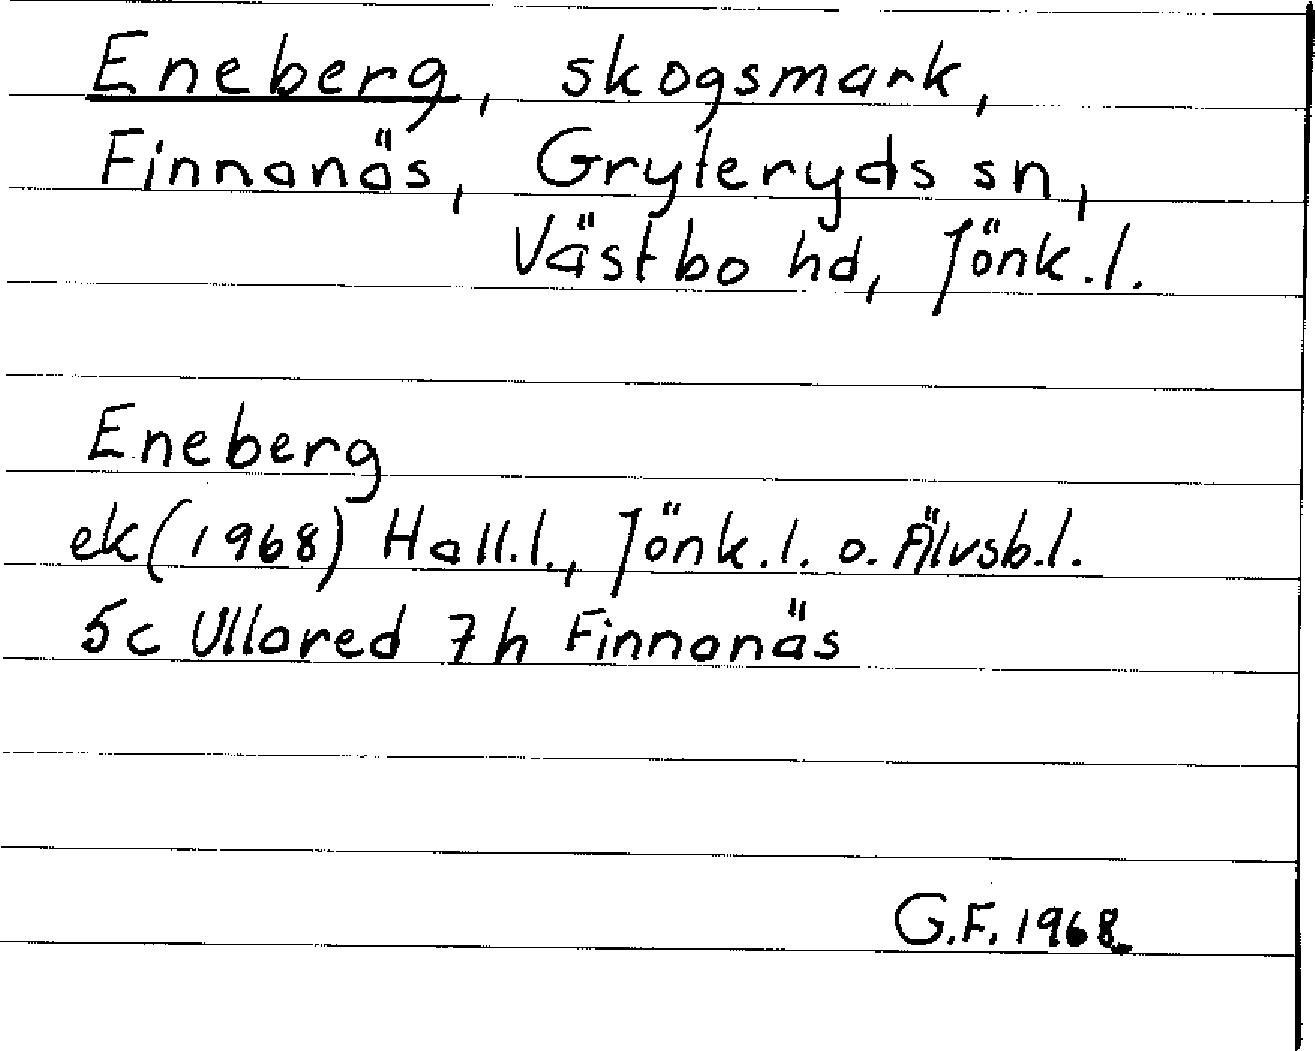 Eneberg, skogsmark,
Finnanäs, Gryteryds sn,
Västbo hd, Jönk.l.
Eneberg
ek(1968) Hall.l., Jönk.l. o. Älvsb.l.
5c Ullared 7h Finnanäs
G.F. 1968